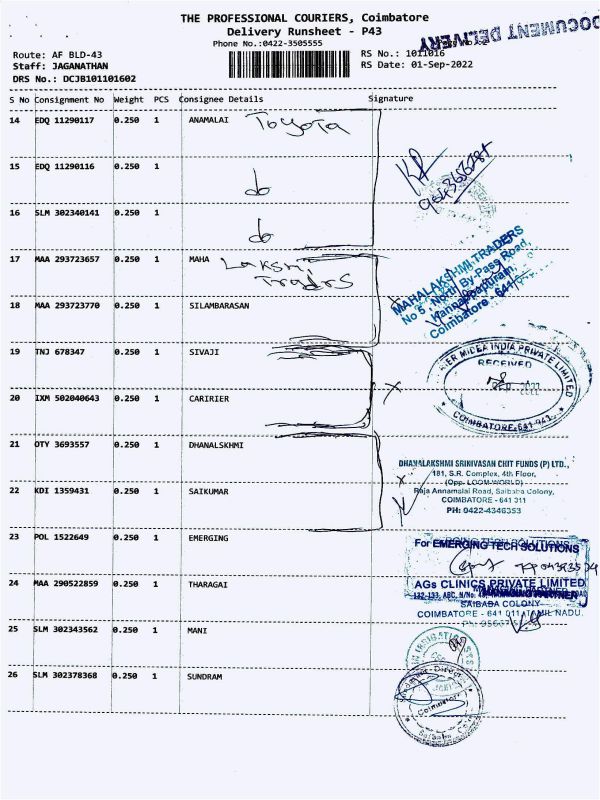 THE PROFESSIONAL COURIERS, Coimbatore
Delivery Runsheet - P43
Phone No.:0422-3505555
DOCUMENT DELIVERY
Route: AF BLD-43
RS No.: 1011016
Staff: JAGANATHAN
RS Date: 01-Sep-2022
DRS No.: DCJB101101602
S No Consignment No Weight PCS Consignee Details Signature
14 EDQ 11290117 0.250 1 ANAMALAI Toyota
15 EDQ 11290116 0.250 1 do
16 SLM 302340141 0.250 1 do
17 MAA 293723657 0.250 1 MAHA Laksmi
Traders
MAHALAKSHMI TRADERS
No 5, North By-Pass Road,
Coimbatore - 641
18 MAA 293723770 0.250 1 SILAMBARASAN
19 TNJ 678347 0.250 1 SIVAJI
MIDEA INDIA PRIVATE LIMITED
RECEIVED
COIMBATORE-641
20 IXM 502040643 0.250 1 CARIRIER
21 OTY 3693557 0.250 1 DHANALSKHMI
DHANALAKSHMI SRINIVASAN CHIT FUNDS (P) LTD.,
181, S.R. Complex, 4th Floor,
(Opp. LOOM WORLD)
Raja Annamalai Road, Saibaba Colony,
COIMBATORE - 641 011
PH: 0422-4346353
22 KDI 1359431 0.250 1 SAIKUMAR
23 POL 1522649 0.250 1 EMERGING
For EMERGING TECH SOLUTIONS
24 MAA 290522859 0.250 1 THARAGAI
AGs CLINICS PRIVATE LIMITED
MANAGING PARTNER
SAIBABA COLONY
COIMBATORE - 641 011 TAMIL NADU.
25 SLM 302343562 0.250 1 MANI
26 SLM 302378368 0.250 1 SUNDRAM
Coimbatore